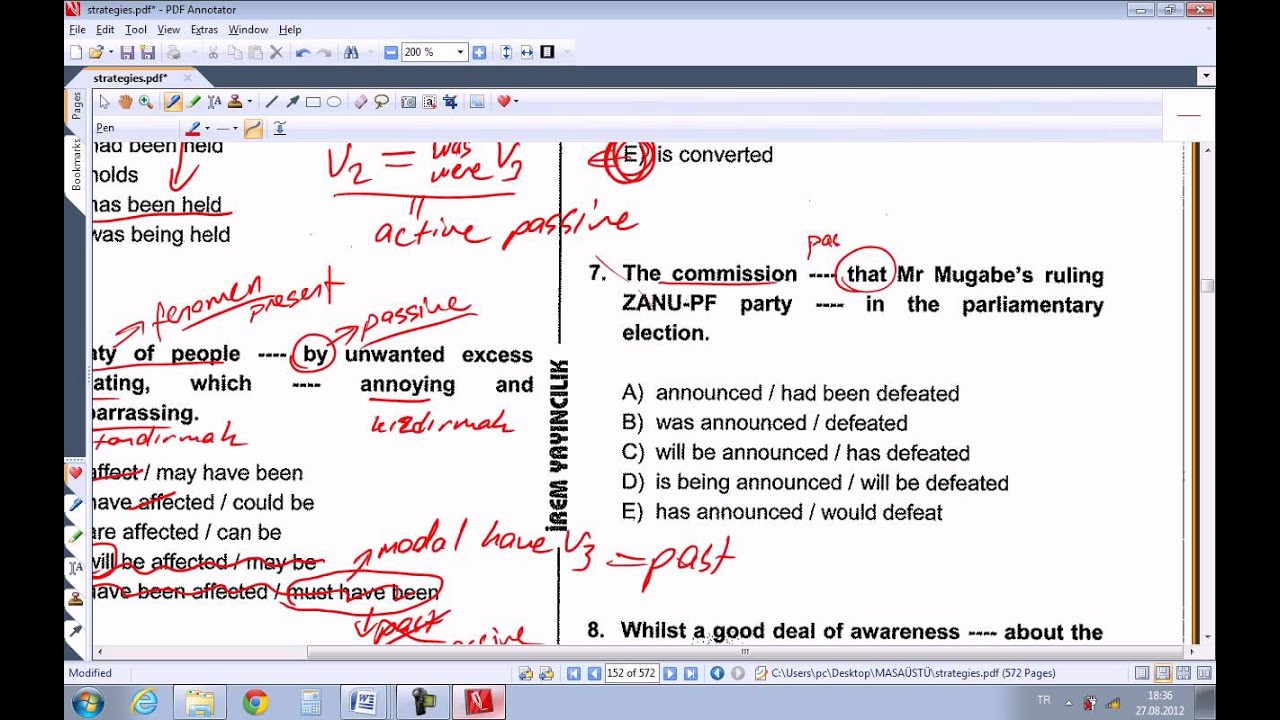 strategies.pdf* - PDF Annotator
File Edit Tool View Extras Window Help
200 %
strategies.pdf*
Pen
Pages
Bookmarks
had been held
holds
has been held
was being held
V2 = was were V3
active passive
fenomen
present
passive
aty of people ---- by unwanted excess
ating, which ---- annoying and
barrassing.
kızdırmak
affect / may have been
have affected / could be
are affected / can be
will be affected / may be
have been affected / must have been
modal have V3 = past
past
İREM YAYINCILIK
E) is converted
pas
7. The commission ---- that Mr Mugabe's ruling
ZANU-PF party ---- in the parliamentary
election.
A) announced / had been defeated
B) was announced / defeated
C) will be announced / has defeated
D) is being announced / will be defeated
E) has announced / would defeat
8. Whilst a good deal of awareness ---- about the
Modified
152 of 572
C:\Users\pc\Desktop\MASAÜSTÜ\strategies.pdf (572 Pages)
TR
18:36
27.08.2012